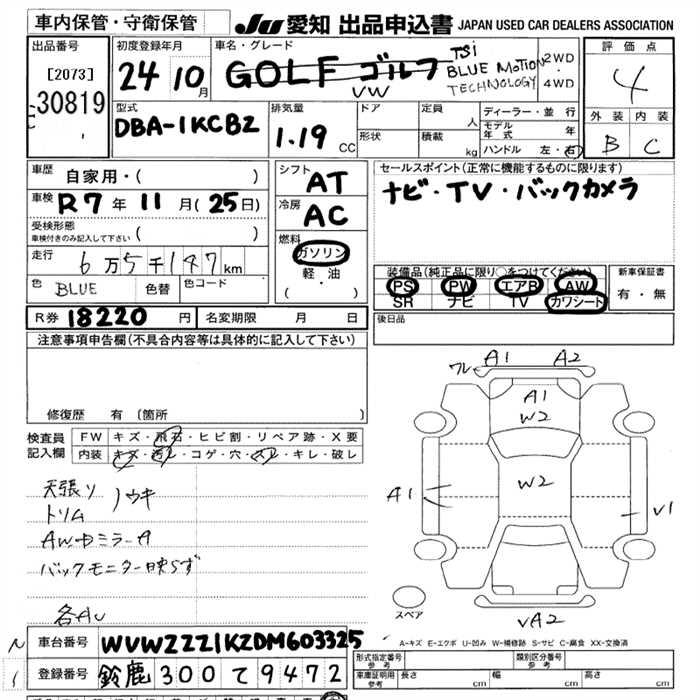 車内保管・守衛保管
JU 愛知 出品申込書 JAPAN USED CAR DEALERS ASSOCIATION
出品番号
[2073]
30819
初度登録年月
24 10月
車名・グレード
GOLF ゴルフ
VW
TSi
BLUE MOTION
TECHNOLOGY
2WD
4WD
評価点
4
外装 内装
B C
型式
DBA-1KCBZ
排気量
1.19 CC
ドア
形状
定員 人
積載 kg
ディーラー・並行
モデル年式 年
ハンドル 左・右
車歴 自家用・( )
車検 R7年11月(25日)
受検形態
車検付きのみ記入して下さい ( )
走行 6万5千147km
色 BLUE 色替 色コード
シフト AT
冷房 AC
燃料
ガソリン
軽・油
( ・ )
セールスポイント(正常に機能するものに限ります)
ナビ・TV・バックカメラ
装備品(純正品に限り○をつけてください)
PS PW エアB AW
SR ナビ TV カワシート
新車保証書
有・無
R券 18220円 名変期限 月 日
後日品
注意事項申告欄(不具合内容等は具体的に記入して下さい)
修復歴 有 〔箇所 〕
検査員
記入欄
FW キズ・飛石・ヒビ割・リペア跡・X要
内装 キズ・汚レ・コゲ・穴・スレ・キレ・破レ
天張り ノウキ
トリム
AW中ミラーA
バックモニター映らず
各AU
ワレ A1 A2
A1
W2
W2
A1
V1
VA2
スペア
A-キズ E-エクボ U-凹み W-補修跡 S-サビ C-腐食 XX-交換済
車台番号 WVWZZZ1KZDM603325
登録番号 鈴鹿 300 て 9472
形式指定番号
参考
類別区分番号
参考
車庫証明用
参考
長さ cm 幅 cm 高さ cm